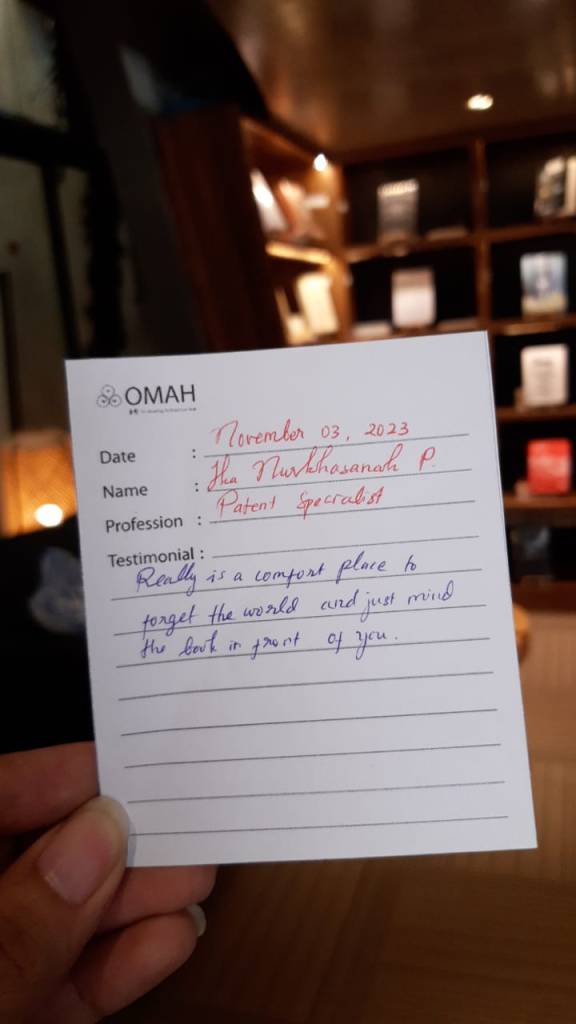 OMAH
Date : November 03, 2023
Name : Ika Nurkhasanah P.
Profession : Patent Specialist
Testimonial :
Really is a comfort place to
forget the world and just mind
the book in front of you.